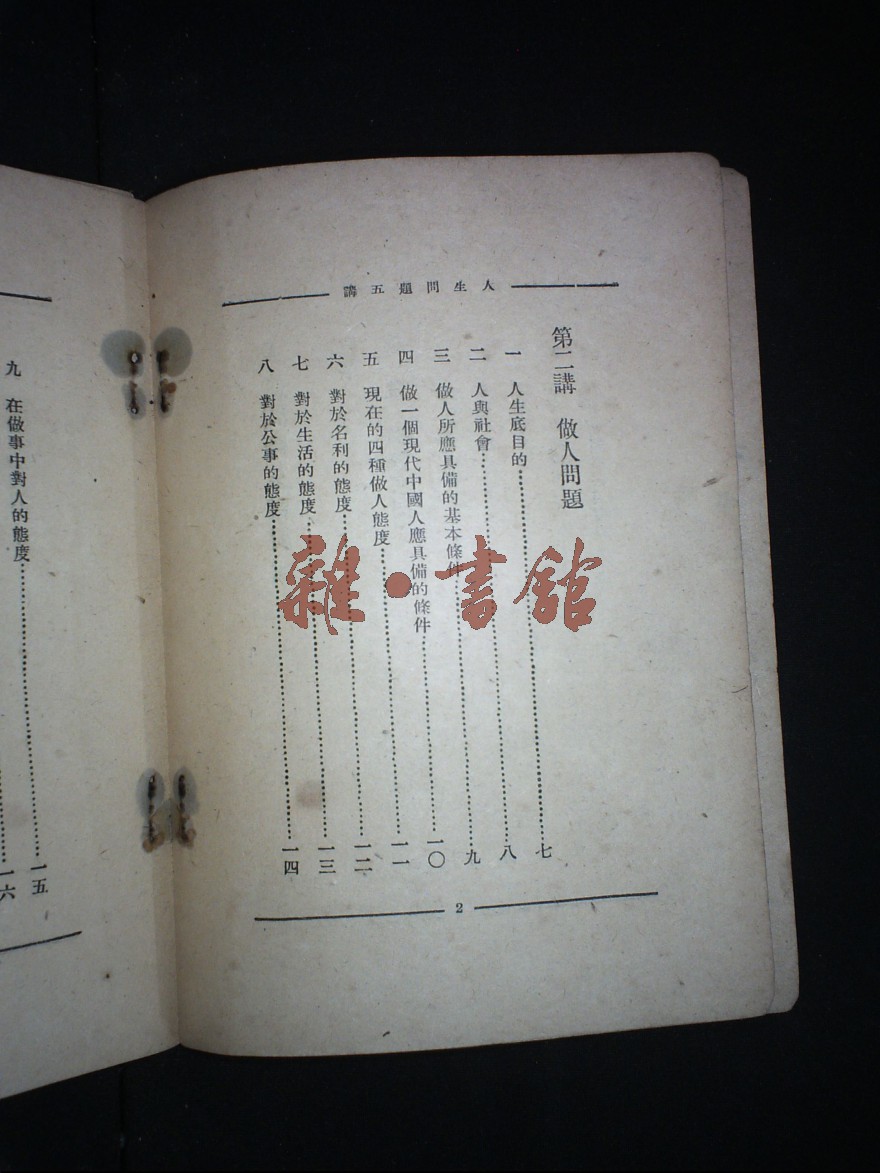 人生問題五講
第二講　做人問題
一　人生底目的……七
二　人與社會……八
三　做人所應具備的基本條件……九
四　做一個現代中國人應具備的條件……一〇
五　現在的四種做人態度……一一
六　對於名利的態度……一二
七　對於生活的態度……一三
八　對於公事的態度……一四
2
九　在做事中對人的態度……一五
一六
雜·書館